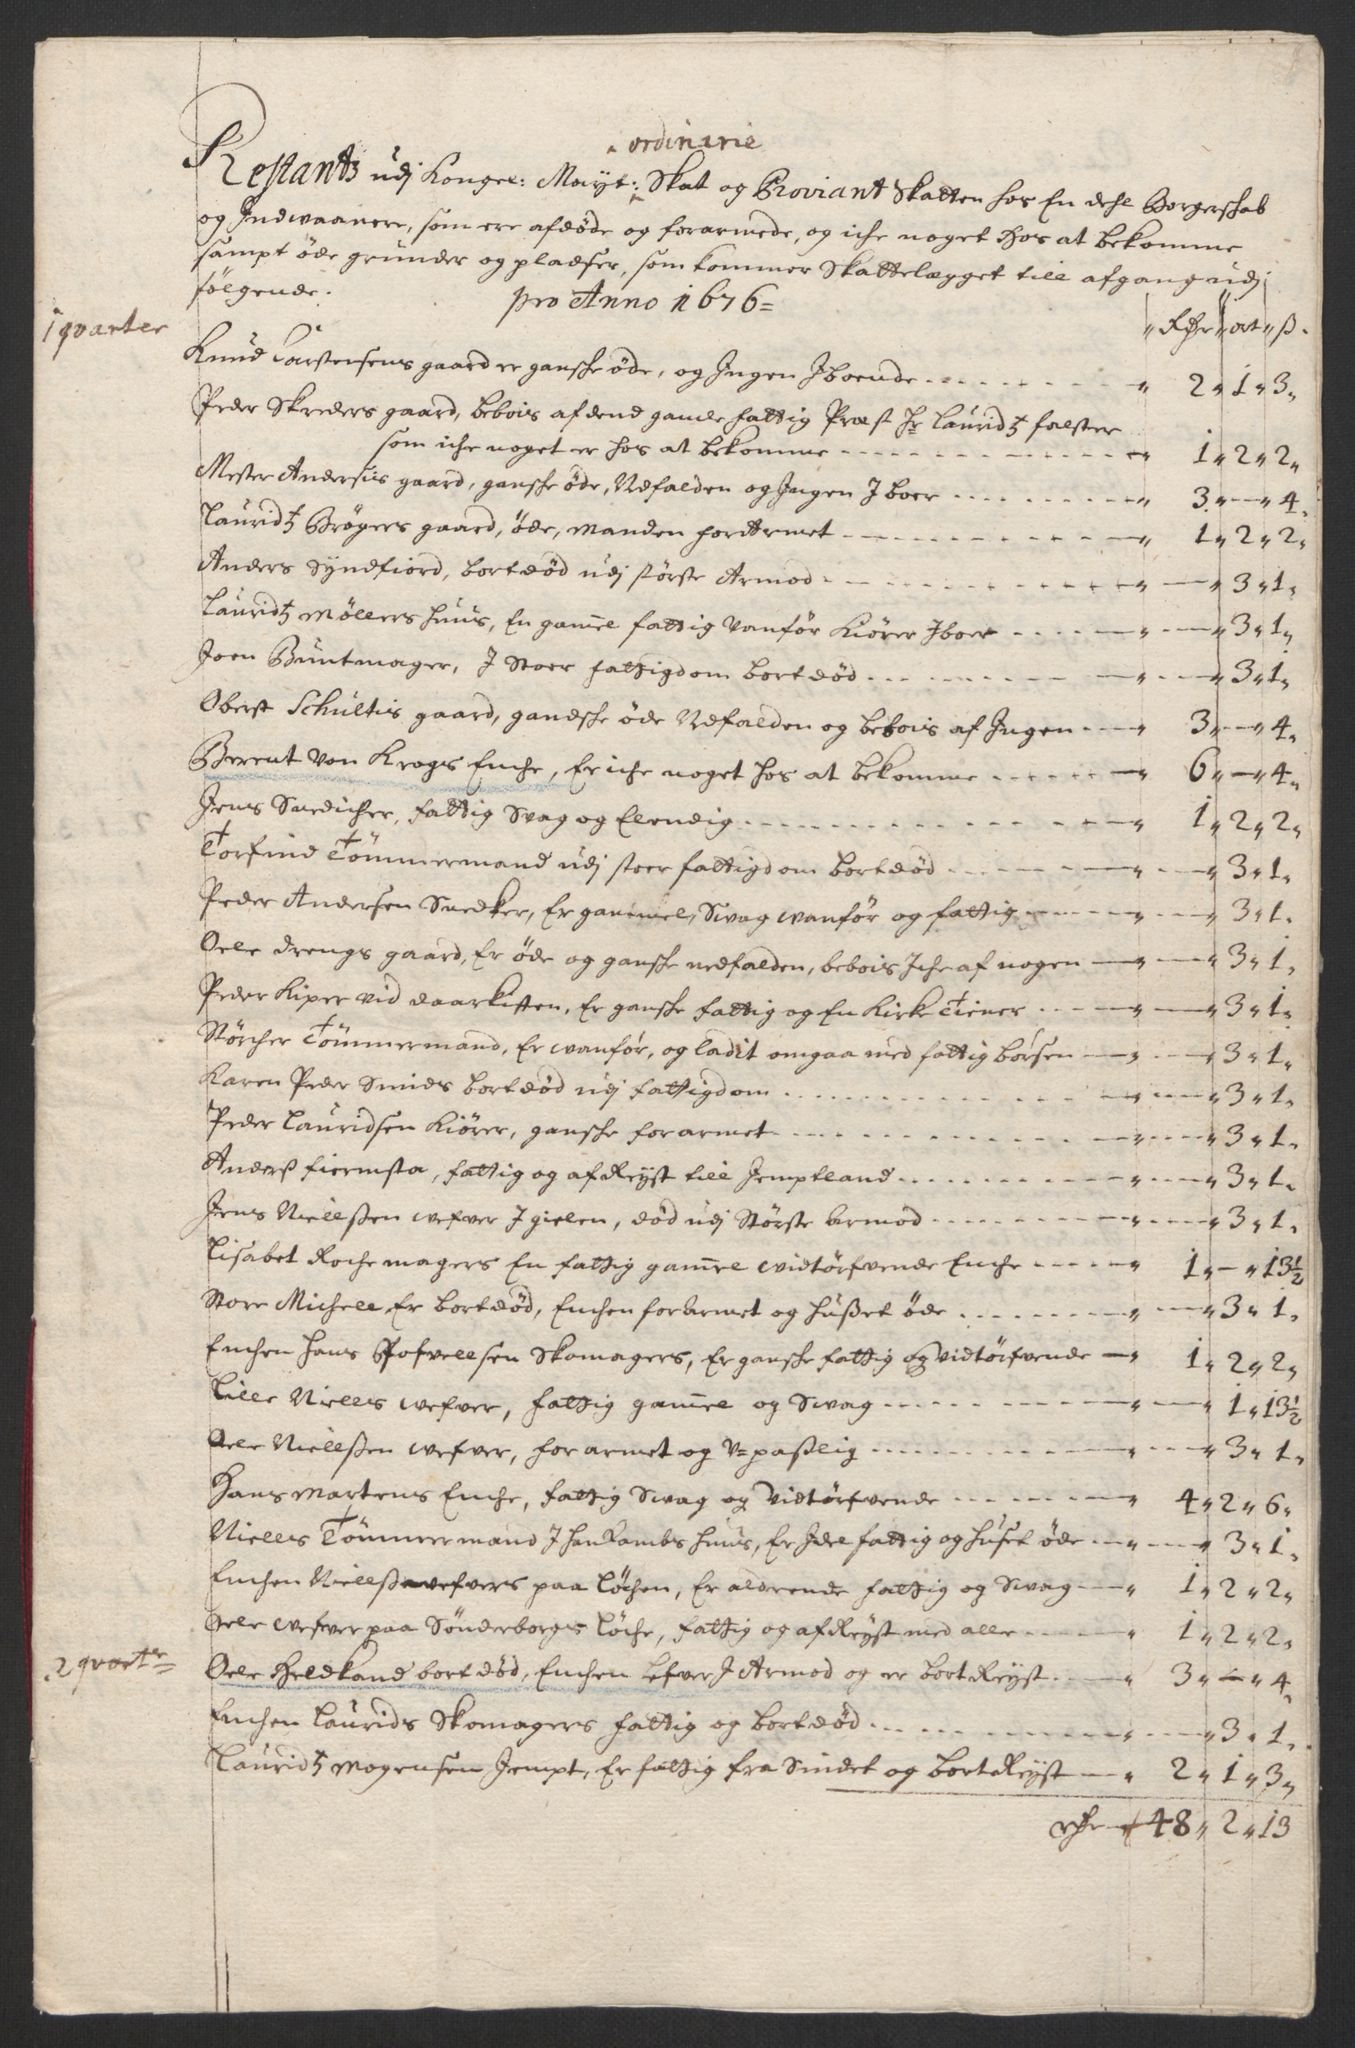 ordinarie
Restantz udj Kongel: Mayt: Skat og Proviant Skatten hos En dehl Borgerschab
og Indwaanere, som ere afdöde og forarmede, og iche noget hos at bekomme
sampt öde grunder og pladser, som kommer Skattelægget till afgang udj
fölgende.
pro Anno 1676 =
1 quarter
Rdr ort ß.
Knud Carstensens gaard er gansche öde, og Ingen Iboende 2 " 1 " 3 "
Peder Skreders gaard, bebois af dend gamle fattig Præst Hr Lauridtz falster
som iche noget er hos at bekomme 1 " 2 " 2 "
Mester Andersis gaard, gansche öde, Nefalden og Ingen I boer 3 " — " 4 "
Lauridtz Brögers gaard, öde, manden forArmet 1 " 2 " 2 "
Anders Syndfiord, bortdöd udj störste Armod — " 3 " 1 "
Lauridtz Möllers huus, En gamel fattig Vanför Kiörer Iboer — " 3 " 1 "
Joen Buntmager, I Stoer fattigdom bortdöd — " 3 " 1 "
Oberst Schultis gaard, gandsche öde Nefalden og bebois af Ingen 3 " — " 4 "
Berent von Krogs Enche, Er iche noget hos at bekomme 6 " — " 4 "
Jens Snedicher, fattig Svag og Elendig 1 " 2 " 2 "
Torfind Tömmermand udj stoer fattigdom bortdöd — " 3 " 1 "
Peder Andersen Snedker, Er gammel, Svag wanför og fattig — " 3 " 1 "
Oele Drengs gaard, Er öde og gansche nedfalden, bebois Iche af nogen — " 3 " 1 "
Peder Kiper vid daarkisten, Er gansche fattig og En Kirke Tiener — " 3 " 1 "
Störcher Tömmermand, Er wanför, og ladit omgaa med fattig börsen — " 3 " 1 "
Karen Peder Smids bortdöd udj fattigdom — " 3 " 1 "
Peder Lauridsen Kiörer, gansche forarmet — " 3 " 1 "
Anderß fiermsta, fattig og afReyst till Jemptland — " 3 " 1 "
Jens Nielßen wefver I gielen, död udj Störste armod — " 3 " 1 "
Lisabet Rochemagers En fattig gamel widtörfvende Enche 1 " — " 13½
Store Michell Er bortdöd, Enchen forArmet og hußet öde — " 3 " 1 "
Enchen Hans Pofvelsen Skomagers, Er gansche fattig og vidtörfvende 1 " 2 " 2 "
Lille Niells wefver, fattig gamel og Swag — " 1 " 13½
Oele Nielßen wefver, forarmet og V=paßlig — " 3 " 1 "
Hans Martens Enche, fattig Swag og Vidtörfvende 4 " 2 " 6 "
Niells Tömmermand I huus, Er Idel fattig og huset öde — " 3 " 1 "
Enchen Nielß wefvers paa Löchen, Er alderende fattig og Swag 1 " 2 " 2 "
Oele wefver paa Sönderborgs Löche, fattig og afReyst med alle 1 " 2 " 2 "
2 quarter =
Oele Heldkand bortdöd, Enchen Lefver I Armod og er bortReyst 3 " — " 4 "
Enchen Laurids Skomagers fattig og bortdöd — " 3 " 1 "
Lauridtz Mogensen Jempt, Er fattig fra Sindet og bortReyst 2 " 1 " 3 "
rdr 48 " 2 " 13